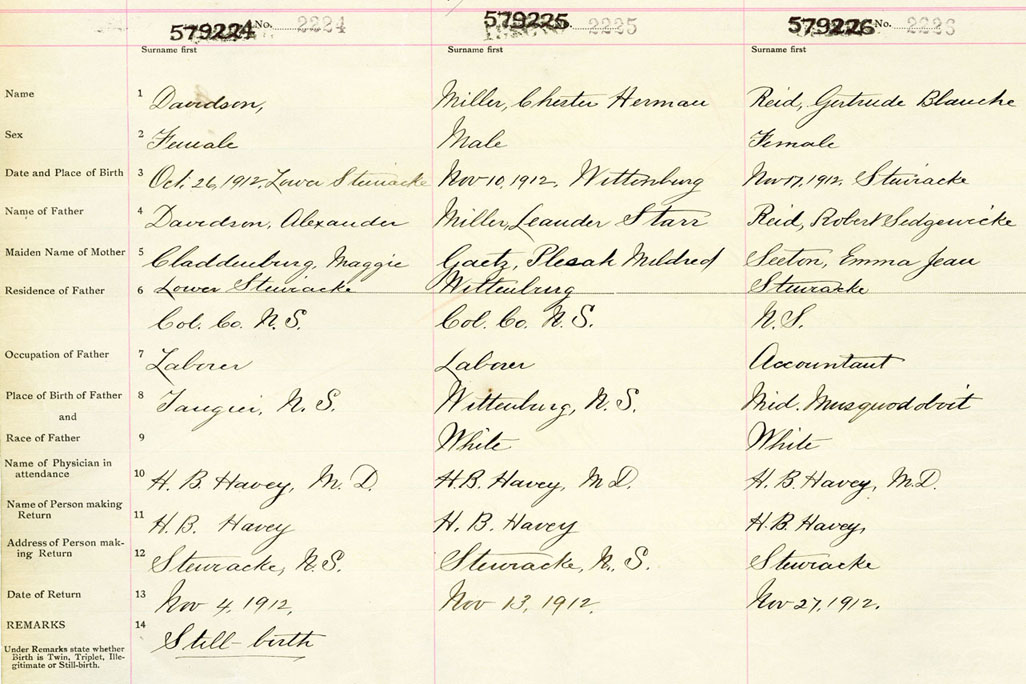 579224 No. 2224 579225 2225 579226 No. 2226
Surname first Surname first Surname first
Name 1 Davidson, Miller, Chester Herman Reid, Gertrude Blanche
Sex 2 Female Male Female
Date and Place of Birth 3 Oct. 26, 1912. Lower Stewiacke Nov 10, 1912. Wittenburg Nov 17, 1912. Stewiacke
Name of Father 4 Davidson, Alexander Miller, Leander Starr Reid, Robert Sedgewicke
Maiden Name of Mother 5 Claddenburg, Maggie Gaetz, Mildred Seeton, Emma Jean
Residence of Father 6 Lower Stewiacke Wittenburg Stewiacke
Col. Co. N.S. Col. Co. N.S. N.S.
Occupation of Father 7 Laborer Laborer Accountant
Place of Birth of Father 8 Tangier, N.S. Wittenburg, N.S. Mid. Musquodobvit
and
Race of Father 9 White White
Name of Physician in
attendance 10 H. B. Havey, M. D. H. B. Havey, M D. H. B. Havey, M.D.
Name of Person making
Return 11 H. B. Havey H. B. Havey H. B. Havey,
Address of Person mak-
ing Return 12 Stewiacke, N.S. Stewiacke, N.S. Stewiacke
Date of Return 13 Nov 4, 1912, Nov 13, 1912, Nov 27, 1912.
REMARKS 14 Still-birth
Under Remarks state whether
Birth is Twin, Triplet, Ille-
gitimate or Still-birth.